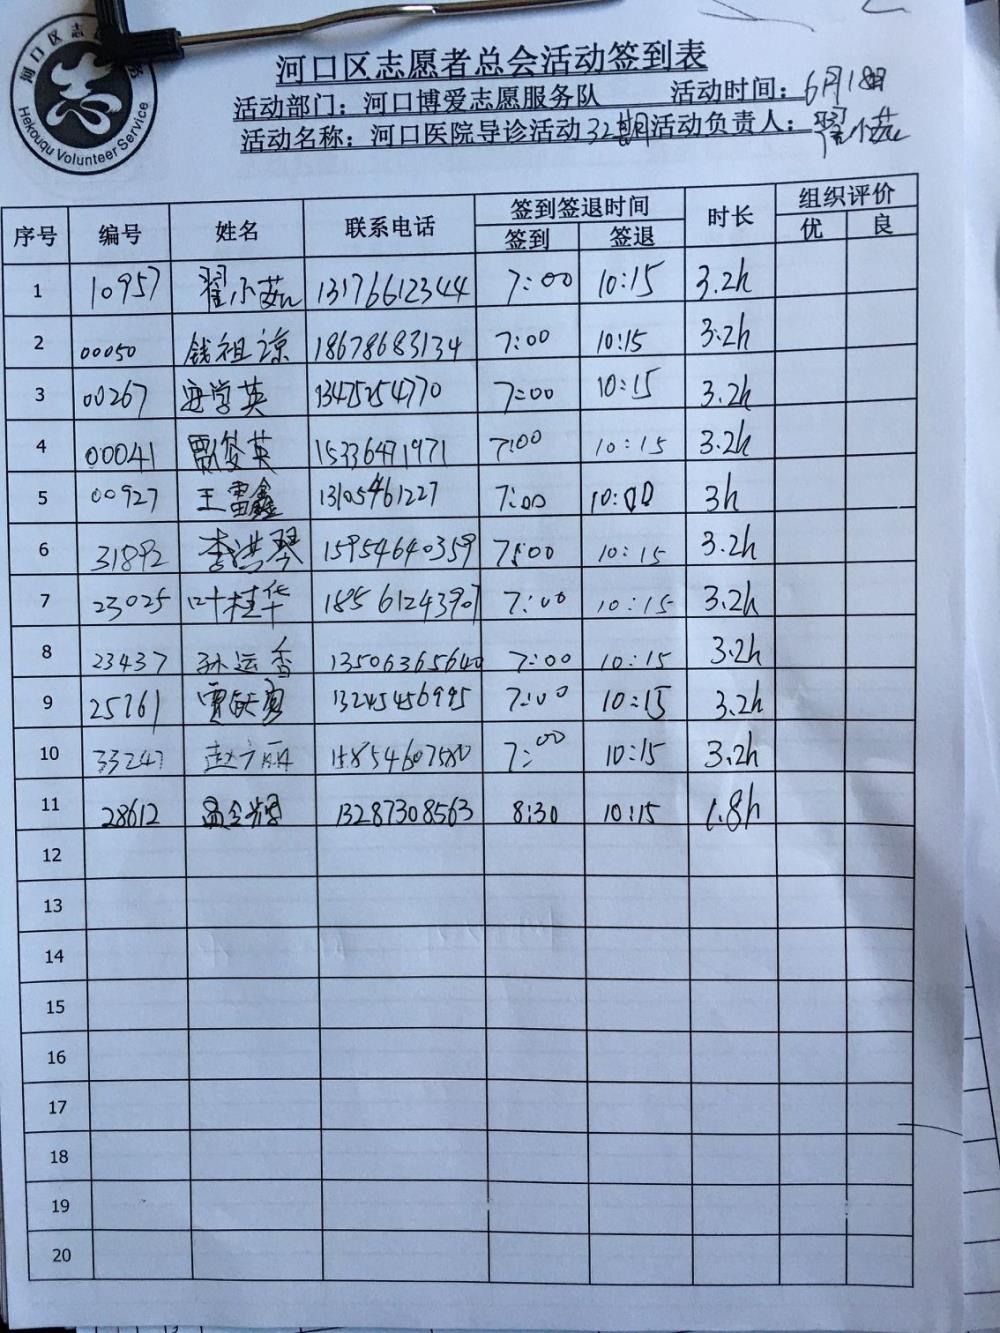 河口区志愿
Hekouqu Volunteer Service
河口区志愿者总会活动签到表
活动部门：河口博爱志愿服务队 活动时间：6月18日
活动名称：河口医院导诊活动32期活动负责人：翟小茹
序号 编号 姓名 联系电话 签到签退时间 时长 组织评价
签到 签退 优 良
1 10957 翟小茹 13176612344 7:00 10:15 3.2h
2 00050 钱祖凉 18678683134 7:00 10:15 3.2h
3 00267 学英 13475254770 7:00 10:15 3.2h
4 00041 英 15336471971 7:00 10:15 3.2h
5 00927 王雷鑫 13105461227 7:00 10:00 3h
6 31892 李洪琴 15954640359 7:00 10:15 3.2h
7 23025 叶桂华 18561243907 7:00 10:15 3.2h
8 23437 孙运香 13506365640 7:00 10:15 3.2h
9 25761 贾 13245456995 7:00 10:15 3.2h
10 33247 赵 丽 15854607580 7:00 10:15 3.2h
11 28612 13287308563 8:30 10:15 1.8h
12
13
14
15
16
17
18
19
20